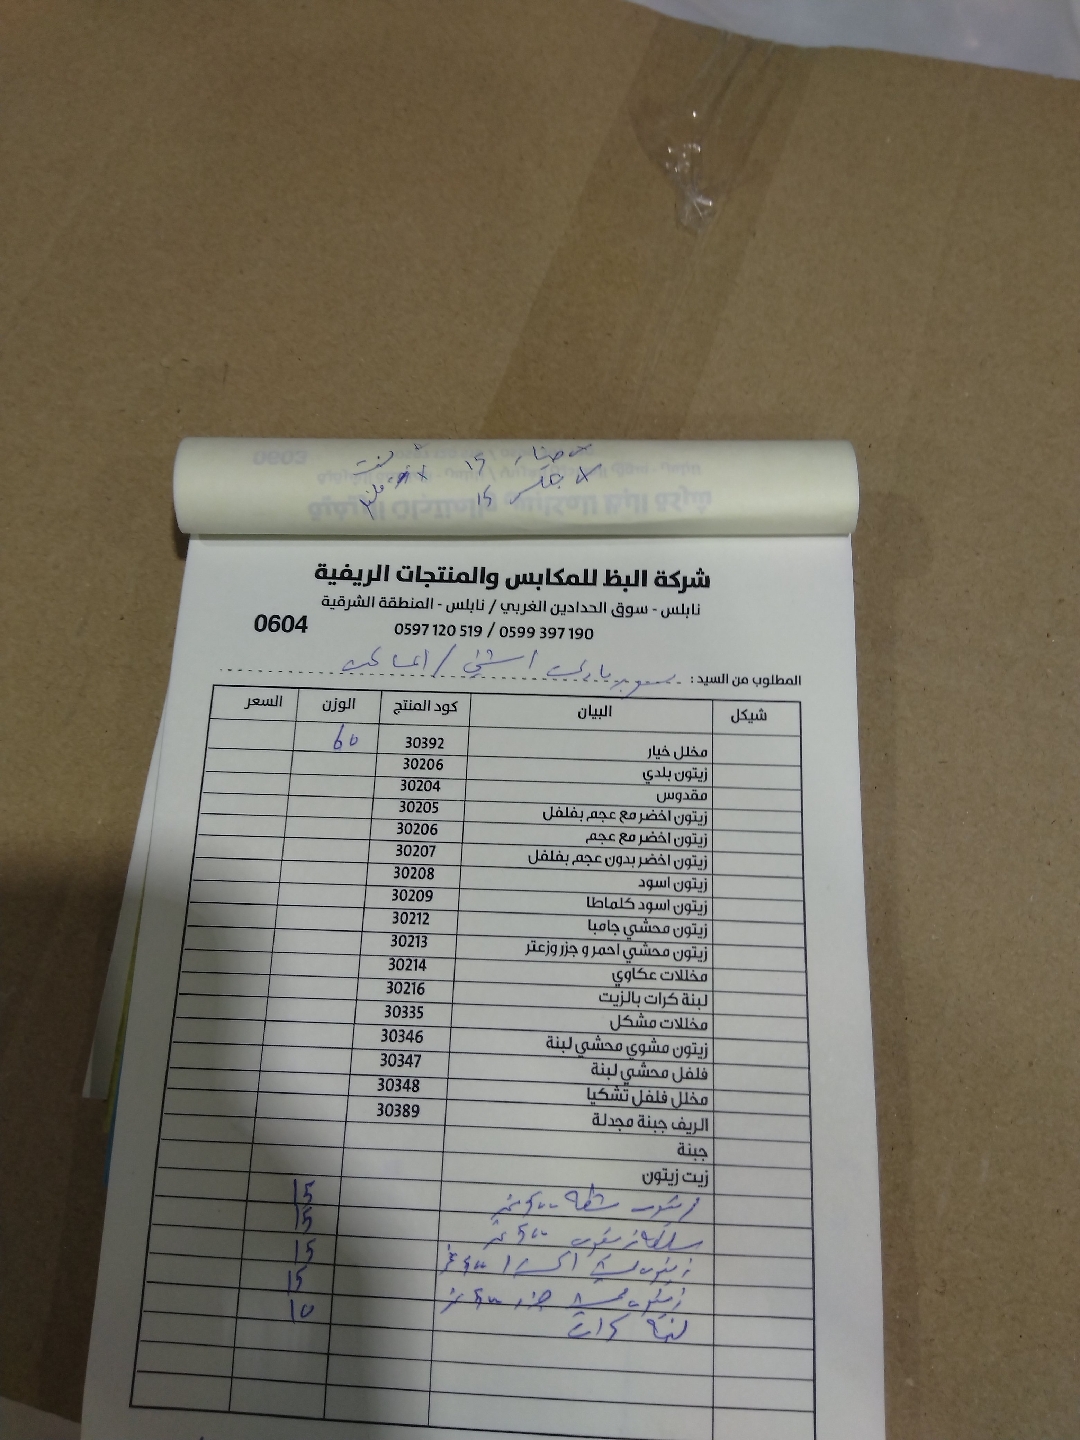 شركة البظ للمكابس والمنتجات الريفية
نابلس - سوق الحدادين الغربي / نابلس - المنطقة الشرقية
0597 120 519 / 0599 397 190
0604
المطلوب من السيد :
شيكل البيان كود المنتج الوزن السعر
مخلل خيار 30392 60
زيتون بلدي 30206
مقدوس 30204
زيتون اخضر مع عجم بفلفل 30205
زيتون اخضر مع عجم 30206
زيتون اخضر بدون عجم بفلفل 30207
زيتون اسود 30208
زيتون اسود كلماطا 30209
زيتون محشي جامبا 30212
زيتون محشي احمر و جزر وزعتر 30213
مخللات عكاوي 30214
لبنة كرات بالزيت 30216
مخللات مشكل 30335
زيتون مشوي محشي لبنة 30346
فلفل محشي لبنة 30347
مخلل فلفل تشكيا 30348
الريف جبنة مجدلة 30389
جبنة
زيت زيتون
شطة 15
سلطة زيتون 15
زيتون 15
زيتون جزر 15
لبنة كرات 10